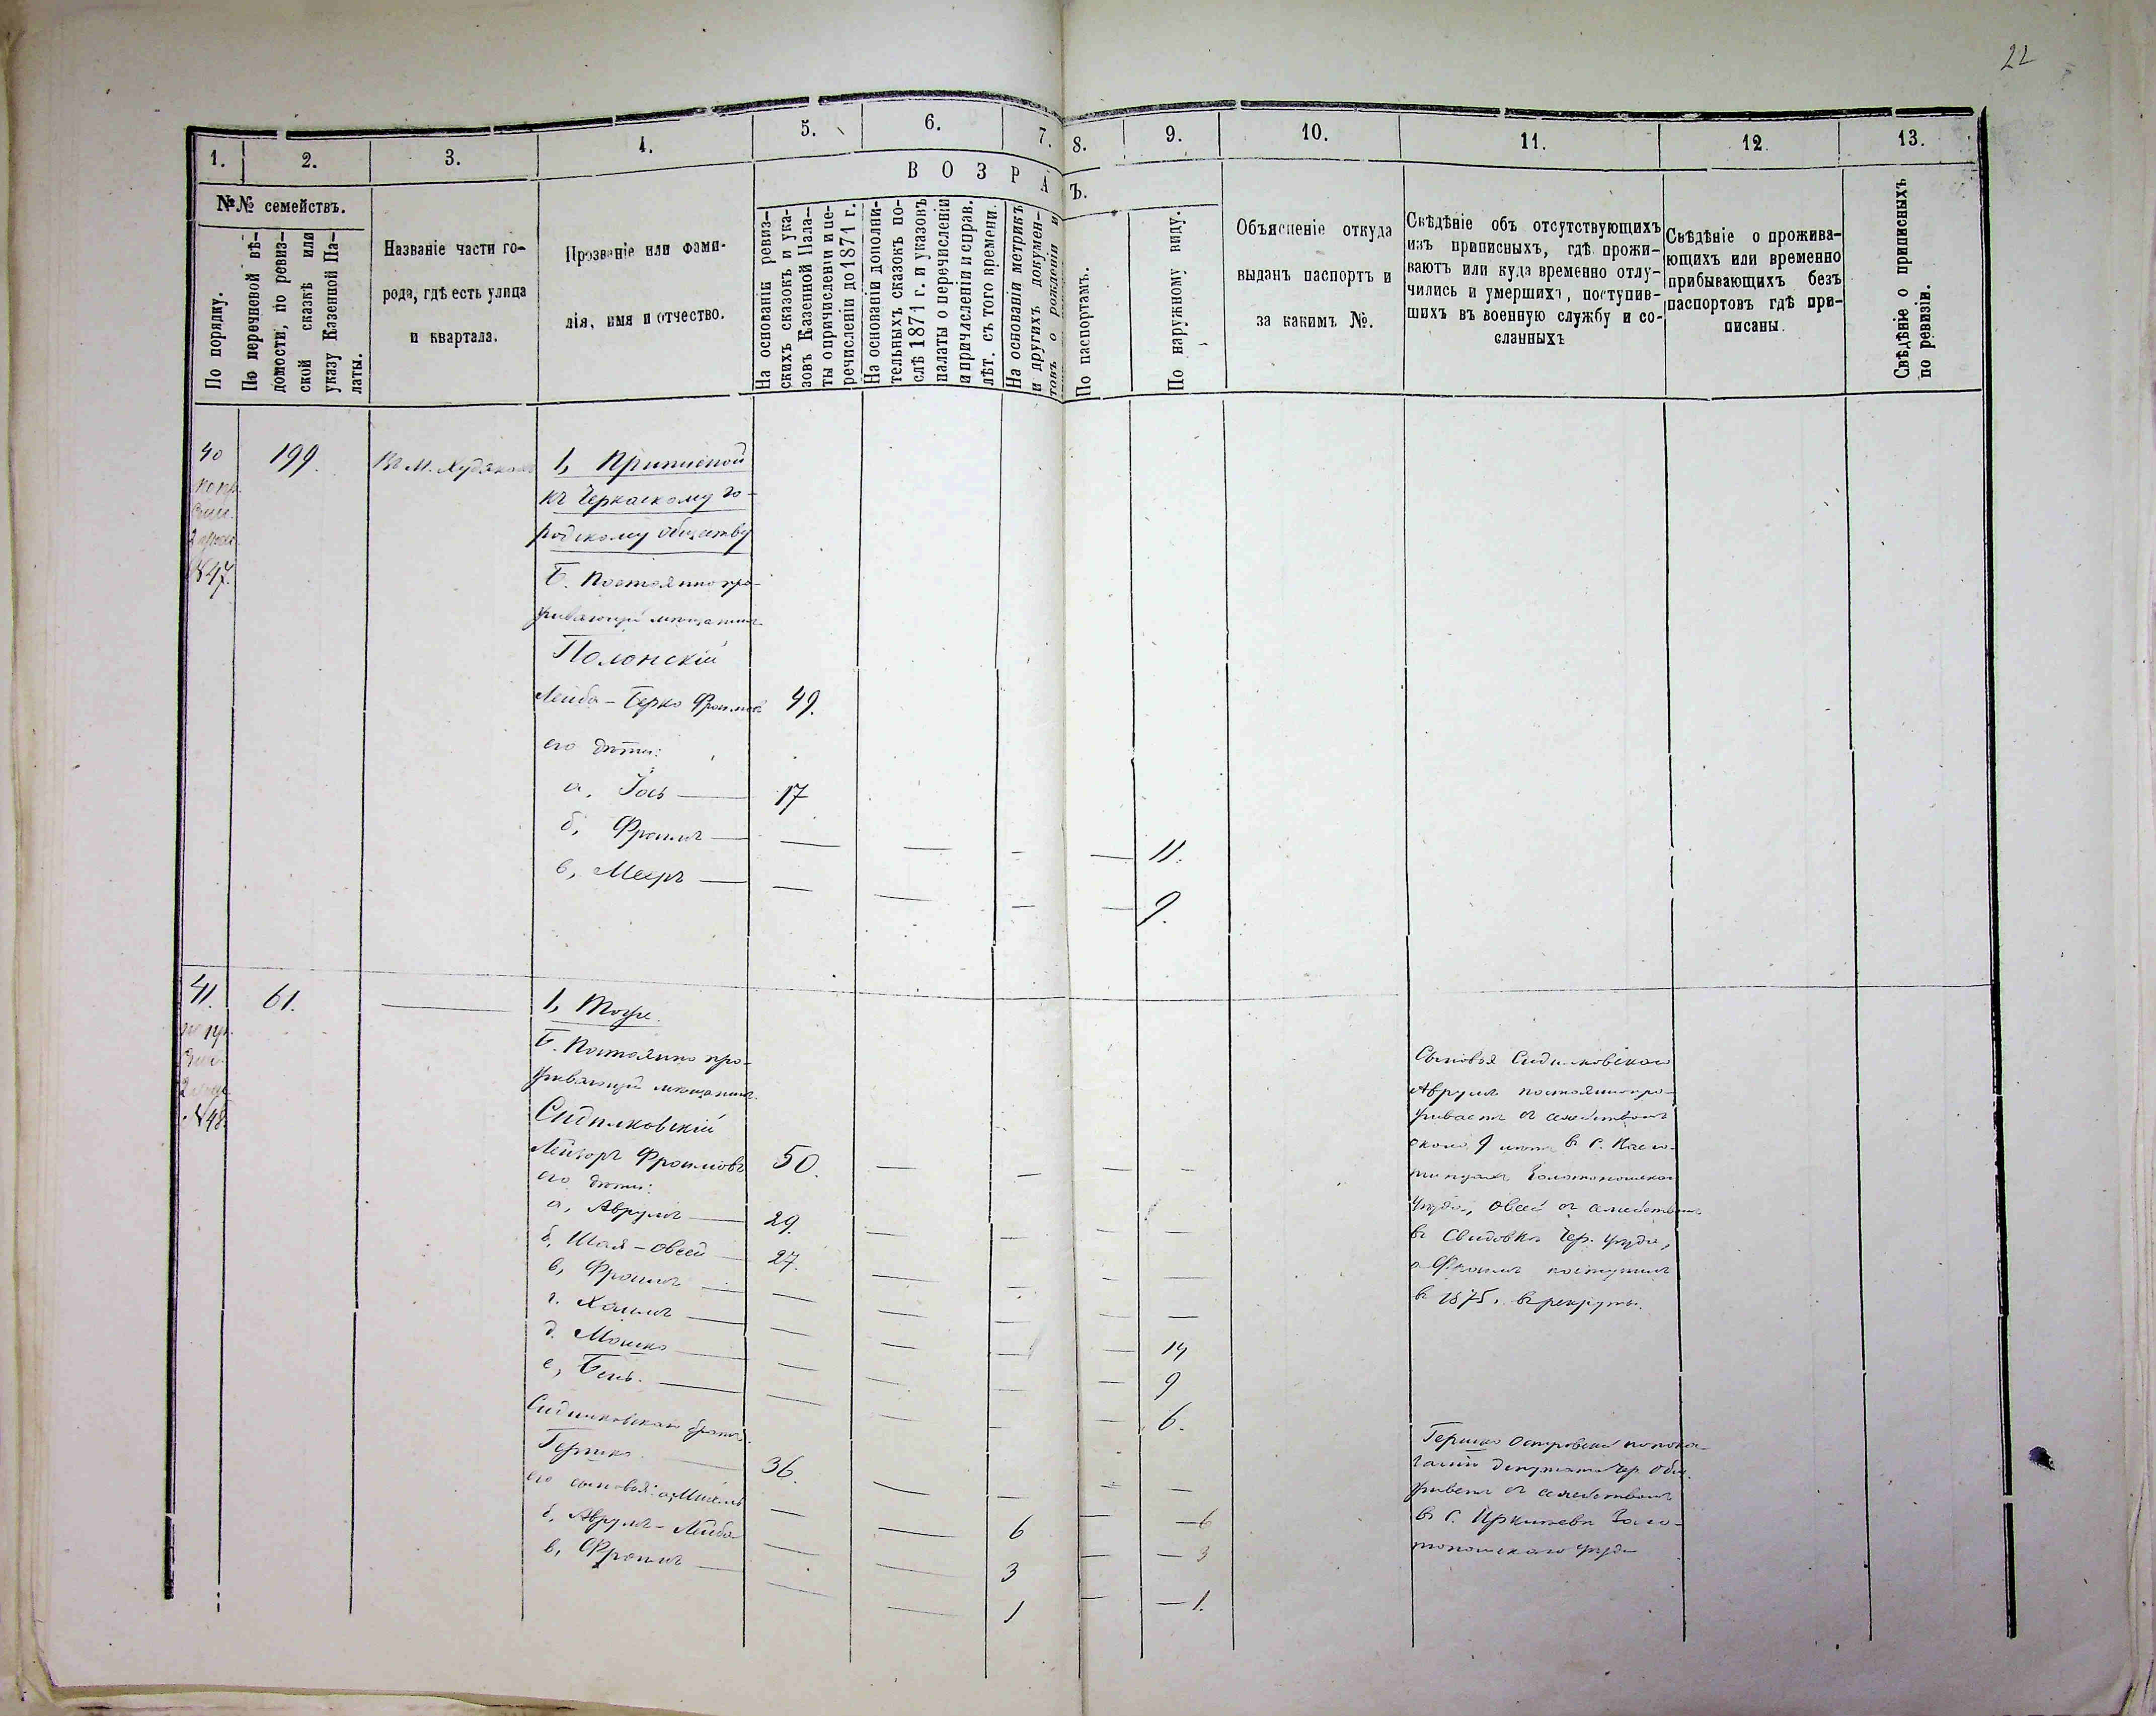 22
1. 2. 3. 4. 5. 6. 7. 8. 9. 10. 11. 12. 13.
№№ семействъ.
По порядку.
По перечневой вѣ-
домости, по ревиз-
ской сказкѣ или
указу Казенной Па-
латы.
Названіе части го-
рода, гдѣ есть улица
и квартала.
Прозваніе или фами-
лія, имя и отчество.
ВОЗРА
Ъ.
На основаніи ревиз-
скихъ сказокъ и ука-
зовъ Казенной Пала-
ты о причисленіи и пе-
речисленіи до 1871 г.
На основаніи дополни-
тельныхъ сказокъ по-
слѣ 1871 г. и указовъ
палаты о перечисленіи
и причисленіи и справ.
лѣт. съ того времени.
На основаніи метрикъ
и другихъ докумен-
товъ о рожденіи и
По паспортамъ.
По наружному виду.
Объясненіе откуда
выданъ паспортъ и
за какимъ №.
Свѣдѣніе объ отсутствующихъ
изъ приписныхъ, гдѣ прожи-
ваютъ или куда временно отлу-
чились и умершихъ, поступив-
шихъ въ военную службу и со-
сланныхъ
Свѣдѣніе о прожива-
ющихъ или временно
прибывающихъ безъ
паспортовъ гдѣ при-
писаны.
Свѣдѣніе о приписныхъ
по ревизіи.
40
199.
Въ м.
1, Приписной
къ Черкаскому го-
родскому обществу
№47.
Б. Постоянно про-
живающій мещанинъ
Полонскій
Лейба-Берко Фроимовъ 49.
его дѣти:
а, Іось — 17
б, Фроимъ — 11.
в, Мееръ — 9.
41.
61.
1, Тоже.
Б. Постоянно про-
живающій мещанинъ.
№48.
Сидилковскій
Лейзоръ Фроимовъ 50.
его дѣти:
а, Аврумъ — 29.
б, Шая-Овсей 27.
в, Фроимъ —
г. Хаимъ — 14
д. Мошко — 9
е, Бень. — 6.
Сидилковскаго братъ.
Гершко 36.
его сыновья: а, Михель 6 — 6
б, Аврумъ-Лейба 3 — 3
в, Фроимъ — 1 — 1.
Сыновья Сидилковскаго
Аврумъ постоянно про-
живаетъ съ семействомъ
около 9 лѣтъ въ с.
Золотоношскаго
уѣзда, Овсей съ семействомъ
въ Свидовкѣ Чер. уѣзда,
а Фроимъ поступилъ
въ 1875 г. въ рекруты.
Гершко
депутата Чер. Общ.
живетъ съ семействомъ
въ с. Золо-
тоношскаго уѣзда